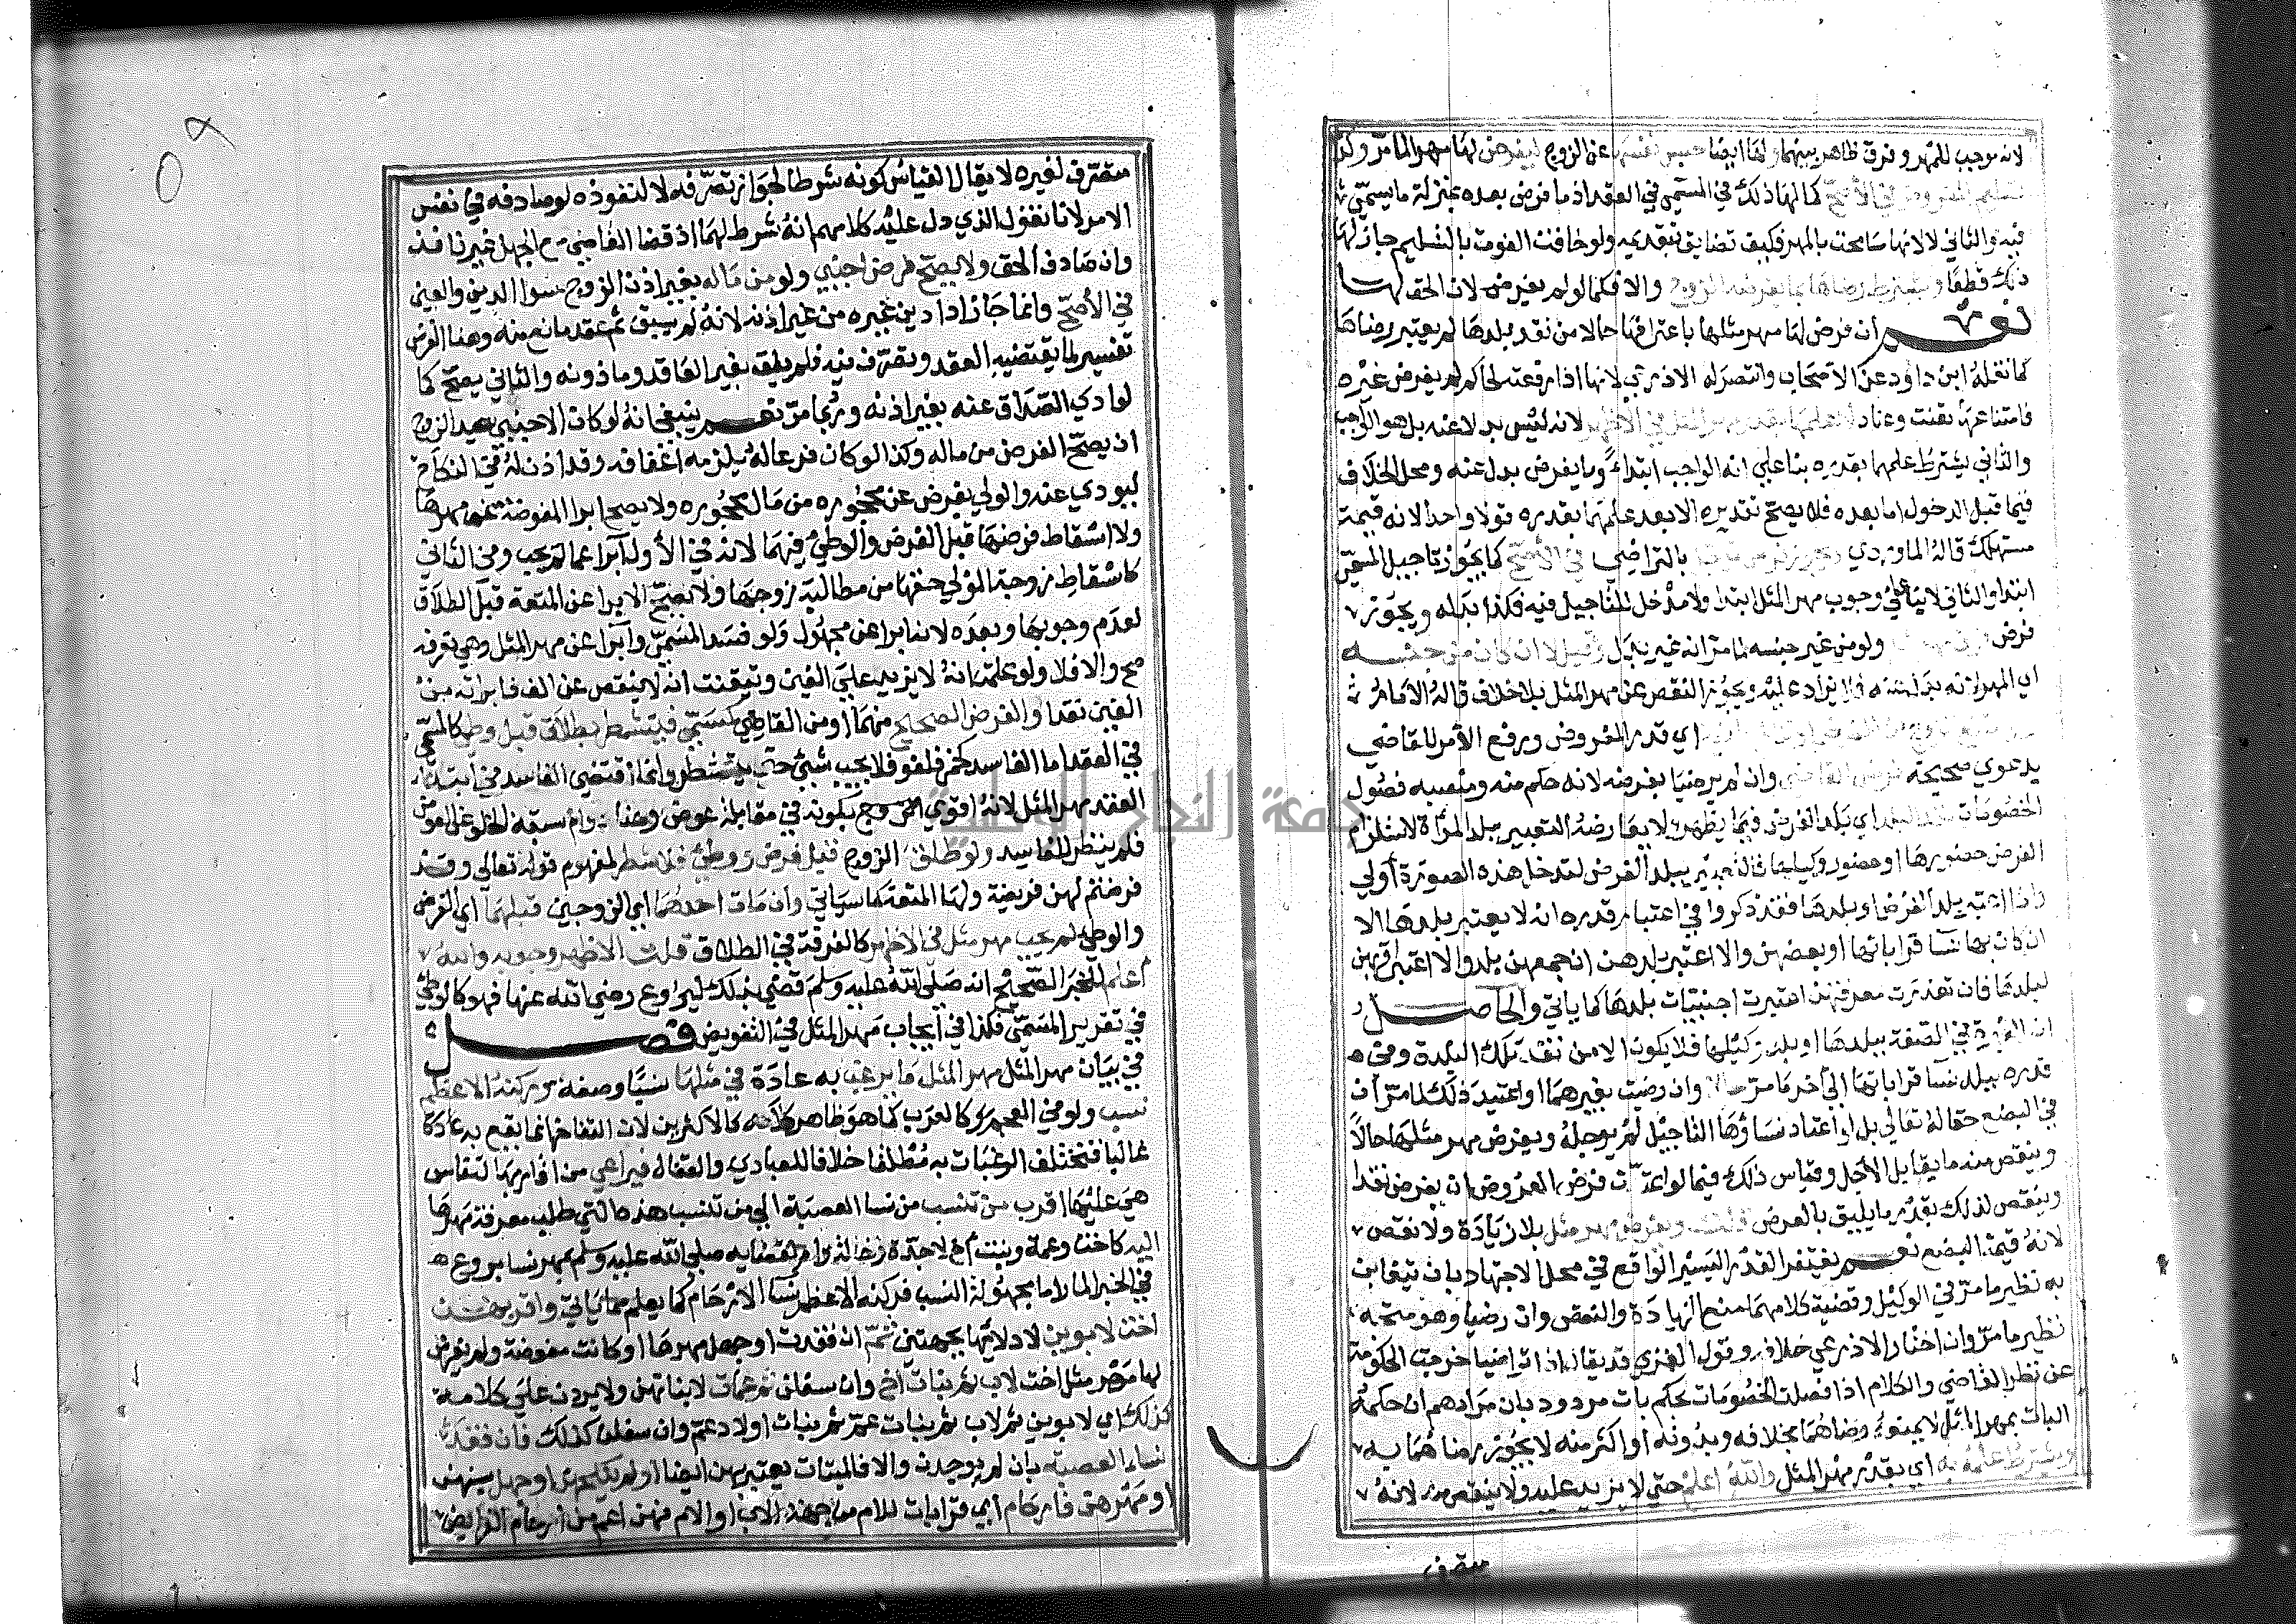 لانه موجب للمهر وفرق ظاهر بينهما ولها ايضا حبس نفسها عن الزوج ليفرض لها مهر لما مر وكذا
لتسليم المفروض في الأصح كما لها ذلك في المسمى في العقد اذ ما فرض بعده بمنزلة ما يسمي
فيه والثاني لا لانها سامحت بالمهر فكيف تضايق بتقديمه ولو خافت الفوت بالتسليم جاز لها
ذلك قطعا ويشترط رضاها بما يفرضه الزوج والا فكما لو لم يفرض لان الحق لها
نعم ان فرض لها مهر مثلها باعترافها حالا من نقد بلدها لم يعتبر رضاها
كما نقله ابن داود عن الاصحاب وانتصر له الاذرعي لانها اذا رفعته لحاكم لم يفرض غيره
فامتناعها تعنت وعناد لا علمهما بقدر مهر المثل في الأظهر لانه ليس بدلا عنه بل هو الواجب
والثاني يشترط علمهما بقدره بنا علي انه الواجب ابتداء وما يفرض بدل عنه ومحل الخلاف
فيما قبل الدخول اما بعده فلا يصح تقديره الا بعد علمهما بقدره قولا واحدا لانه قيمة
مستهلك قاله الماوردي ويجوز فرض مؤجل بالتراضي في الأصح كما يجوز تاجيل المسمى
ابتدا والثاني لا بنا علي وجوب مهر المثل ابتدا ولا مدخل للتاجيل فيه فكذا بدله ويجوز
فرض فوق مهر ولو من غير جنسه لما مر انه غير بدل وقيل لا ان كان من جنسه
اي المهر لانه بدل عنه فلا يزاد عليه ويجوز النقص عن مهر المثل بلا خلاف قاله الامام
ولو امتنع الزوج من الفرض او تنازعا فيه اي قدر المفروض ورفع الأمر للقاضي
بدعوي صحيحة فرض القاضي وان لم يرضيا بفرضه لانه حكم منه ومنصبه فصول
الخصومات نقد البلد اي بلد الفرض فيما يظهر ولا يعارضه التعبير ببلد المرأة لاستلزام
الفرض حضورها او حضور وكيلها فالتعبير ببلد الفرض لتدخل هذه الصورة أولي
واذا اعتبر بلد الفرض او بلدها فقد ذكروا في اعتبار قدره انه لا يعتبر بلدها الا
ان كان بها نسا قراباتها او بعضهن والا اعتبر بلدهن ان جمعهن بلد والا اعتبر اقربهن
لبلدها فان تعذرت معرفتهن اعتبرت اجنبيات بلدها كما ياتي والحاصل
ان العبرة في الصفة ببلدها او بلد وكيلها فلا يكون الا من نقد تلك البلدة وفي
قدره ببلد نسا قراباتها الي آخر ما مر حالا وان رضيت بغيرهما او اعتيد ذلك لما مر أن
في البضع حقا لله تعالي بل لو اعتاد نساؤها التاجيل لم يوجله ويفرض مهر مثلها حالا
وينقص منه ما يقابل الأجل وقياس ذلك فيما لو اعتدن فرض العروض ان يفرض نقدا
وينقص لذلك بقدر ما يليق بالعرض قلت ويفرض مهر مثل بلا زيادة ولا نقص
لانه قيمة البضع نعم يغتفر القدر اليسير الواقع في محل الاجتهاد بان يتغابن
به نظير ما مر في الوكيل وقضية كلامهما منع الزيادة والنقص وان رضيا وهو متجه
نظير ما مر وان اختار الاذرعي خلافه وقول الغزي قد يقال اذا تراضيا خرجت الحكومة
عن نظر القاضي والكلام اذا فصلت الخصومات بحكم بات مردود بان مرادهم ان حكمه
البات بمهر المثل لا يمنع رضاهما بخلافه وبدونه أو اكثر منه لا يجوز رضاهما به
ويشترط علمه به اي بقدر مهر المثل والله اعلم حتي لا يزيد عليه ولا ينقص منه لانه
متصرف
متصرف لغيره لا يقال القياس كونه شرطا لجواز تصرفه لا لنفوذه لو صادفه في نفس
الامر لانا نقول الذي دل عليه كلامهم انه شرط لهما اذ قضا القاضي مع الجهل غير نافذ
وان صادف الحق ولا يصح فرض اجنبي ولو من ماله بغير اذن الزوج سوا الدين والعين
في الأصح وانما جاز ادا دين غيره من غير اذنه لانه لم يسبق ثم عقد مانع منه وهنا الفرض
تفسير لما يقتضيه العقد وتصرف فيه فلم يلق بغير العاقد وماذونه والثاني يصح كما
لو ادي الصداق عنه بغير اذنه وربما مر نعم ينبغي انه لو كان الاجنبي سيد الزوج
ان يصح الفرض من ماله وكذا لو كان فرعا له يلزمه اعفافه وقد اذن له في النكاح
ليودي عنه والولي يفرض عن محجوره من مال محجوره ولا يصح ابرا المفوضة عن مهرها
ولا اسقاط فرضها قبل الفرض والوطئ فيهما لانه في الأول ابرا عما لم يجب وفي الثاني
كاسقاط زوجة المولي حقها من مطالبة زوجها ولا يصح الابرا عن المتعة قبل الطلاق
لعدم وجوبها وبعده لانه ابرا عن مجهول ولو فسد المسمي وأبرأ عن مهر المثل وهي تعرفه
صح والا فلا ولو علمت انه لا يزيد علي الفين وتيقنت انه لا ينقص عن الف فابراته من
الفين نفذا والفرض الصحيح منهما أو من القاضي كمسمي فيتشطر بطلاق قبل وطئ كالمسمي
في العقد اما الفاسد كخمر فلغو فلا يجب شئ حتي يتشطر وانما اقتضي الفاسد في ابتداء
العقد مهر المثل لانه اقوي بكونه في مقابلة عوض وهنا دوام سبقه الخلو عن العوض
فلم ينظر للفاسد ولو طلق الزوج قبل فرض ووطئ فلا شطر لمفهوم قوله تعالي وقد
فرضتم لهن فريضة ولها المتعة كما سياتي وان مات احدهما أي الزوجين قبلهما اي الفرض
والوطئ لم يجب مهر مثل في الاظهر كالفرقة في الطلاق قلت الاظهر وجوبه والله
أعلم للخبر الصحيح انه صلى الله عليه وسلم قضي بذلك لبروع رضي الله عنها فهو كالوطئ
في تقرير المسمي فكذا في ايجاب مهر المثل في التفويض فصل
في بيان مهر المثل مهر المثل ما يرغب به عادة في مثلها نسبا وصفة وركنه الاعظم
نسب ولو في العجم كالعرب كما هو ظاهر كلامه كالأكثرين لان التفاخر انما يقع به عادة
غالبا فتختلف الرغبات به مطلقا خلافا للعبادي والقفال فيراعي من اقاربها لتقاس
هي عليها اقرب من تنسب من نسا العصبة الي من تنسب هذه التي طلب معرفة مهرها
اليه كاخت وعمة وبنت أخ لا جدة وخالة لقضايه صلى الله عليه وسلم بمهر نسا بروع
في الخبر المار اما مجهولة النسب فركنه الاعظم نسا الارحام كما يعلم مما ياتي واقربهن
اخت لابوين لادلائها بجهتين ثم ان فقدت او جهل مهرها او كانت مفوضة ولم يفرض
لها مهر مثل اخت لاب ثم بنات أخ وان سفلن ثم عمات لا بناتهن ولا يردن علي كلامه
كذلك اي لابوين ثم لاب ثم بنات عم ثم بنات اولاد عم وان سفلن كذلك فان فقد
نساء العصبة بان لم يوجدن والا فالميتات يعتبر بهن ايضا أو لم ينكحن او جهل نسبهن
او مهرهن فارحام أي قرابات للام من جهة الاب او الام فهن اعم من ارحام الفرايض
جامعة النجاح الوطنية